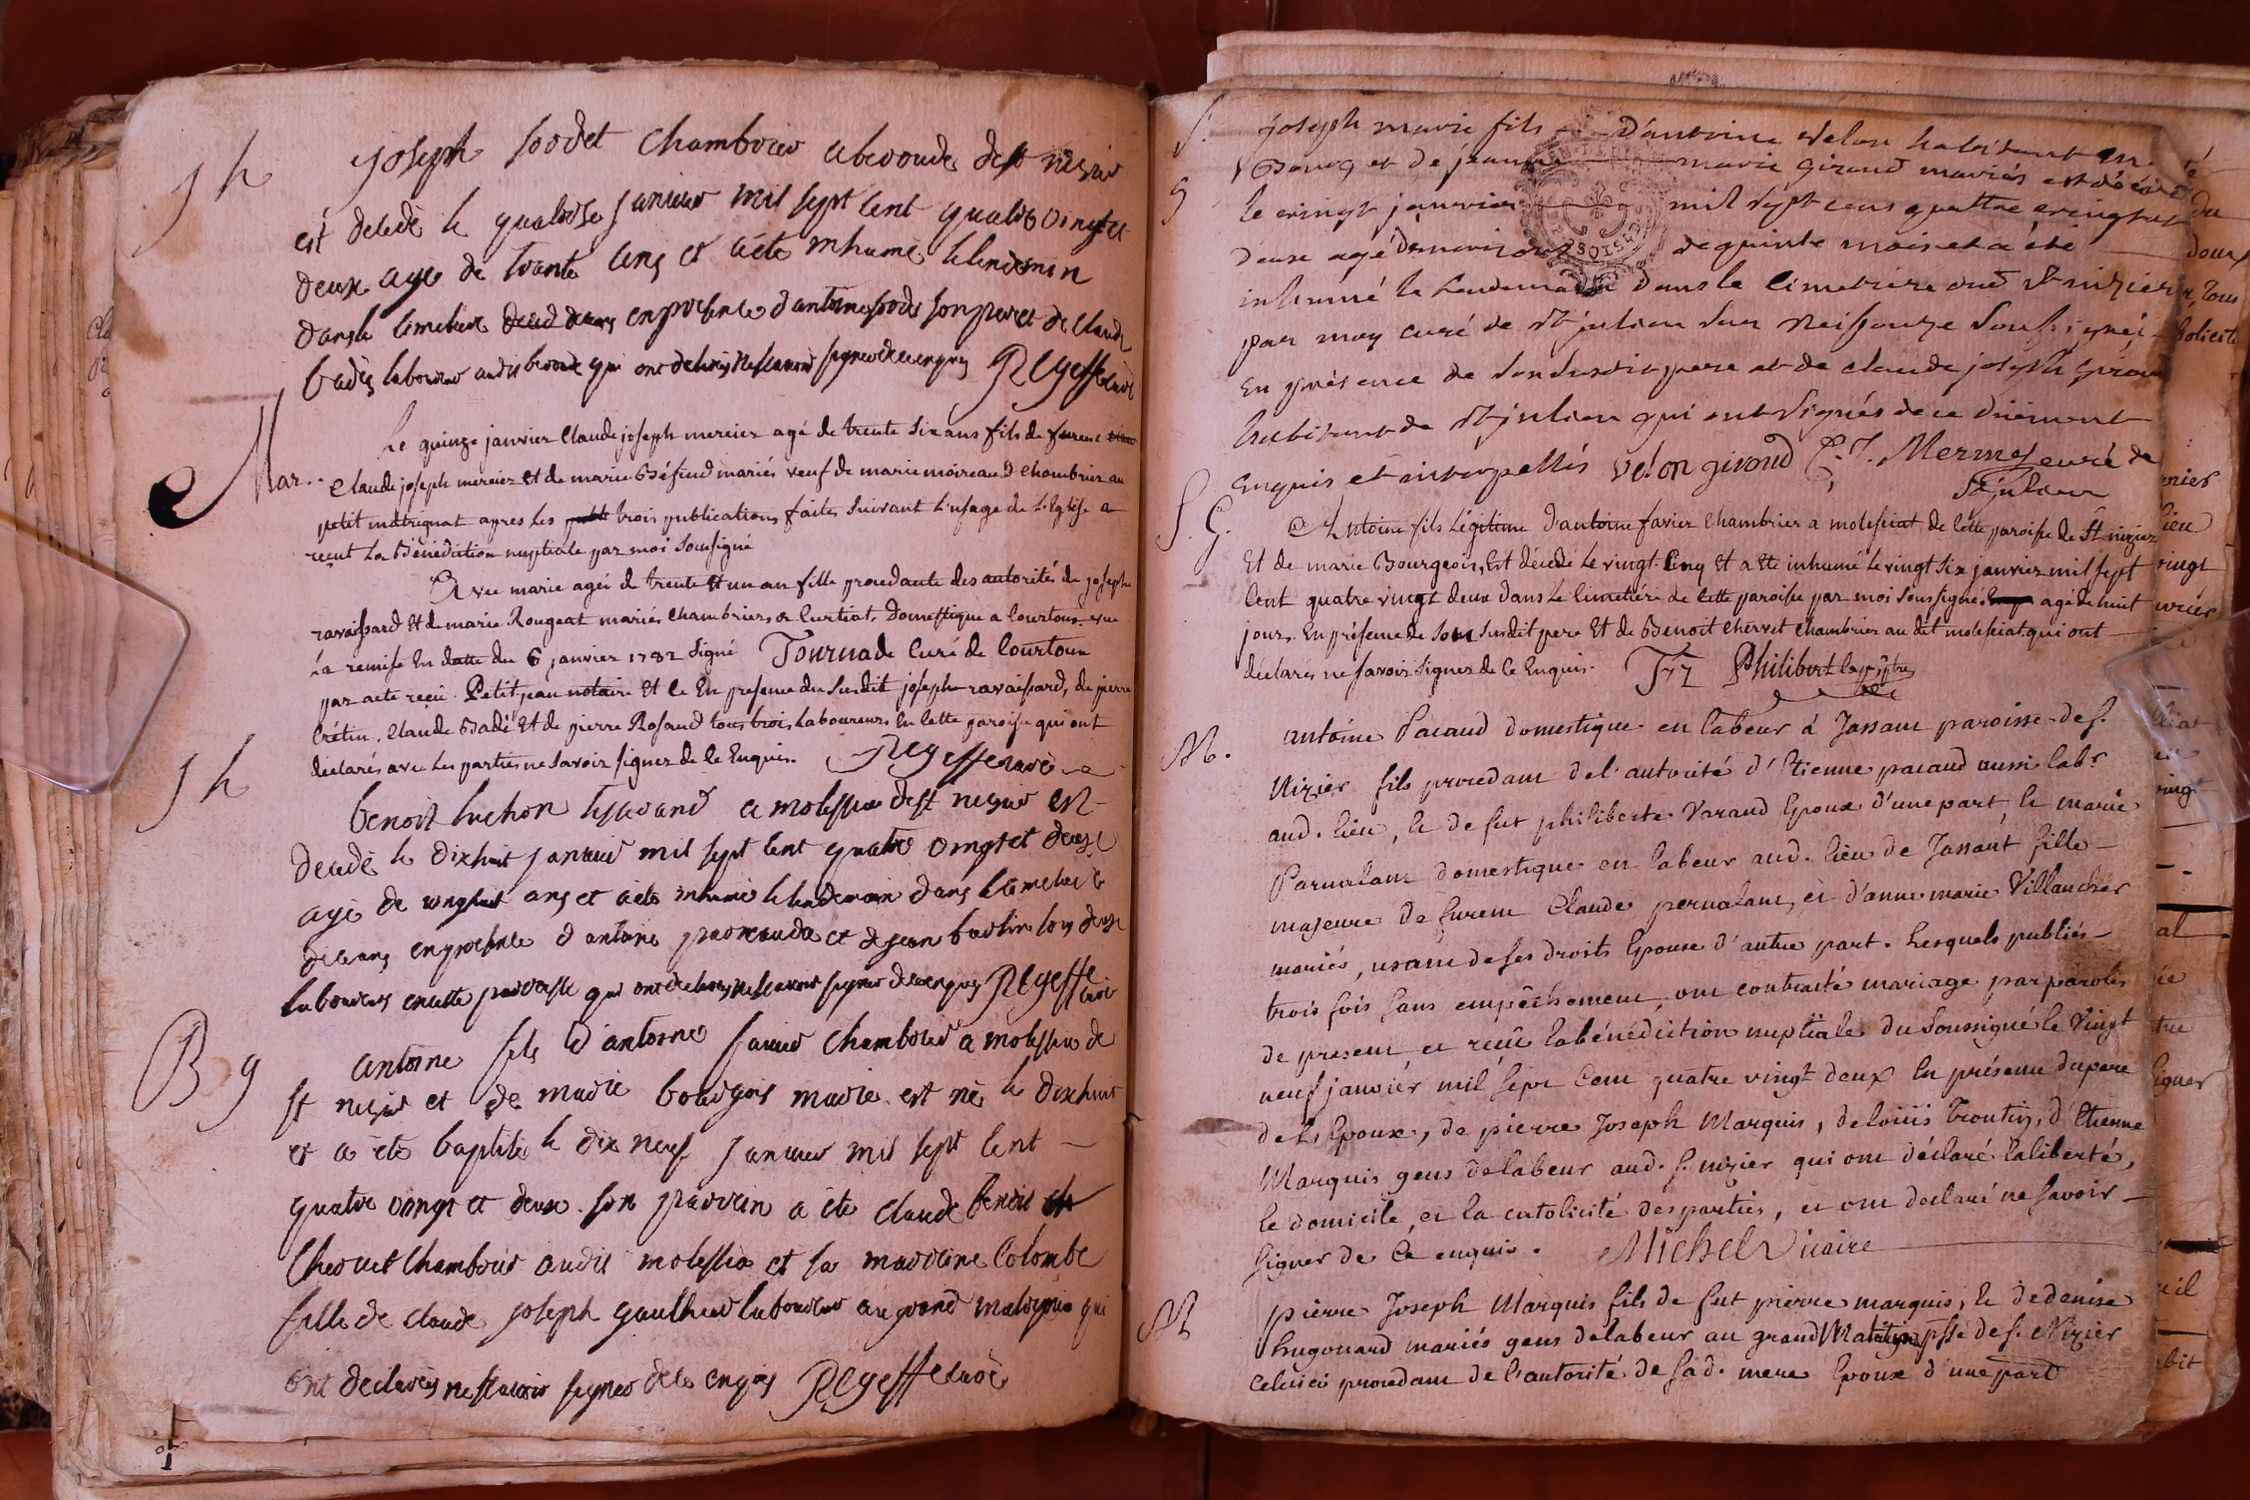 S h
joseph sodet chambrier a beroude de st nizier
est decedé le quatorze janvier mil sept cent quatre vingt et
deux agé de trante ans et a été inhumé le lendemin
dans le cimetiere en presence d'antoine sodet son pere et de claude
badés laboureur audit beroude qui ont declarés ne scavoir signer de ce enquis Reyeffe curé
Mar.
Le quinze janvier claude joseph mercier agé de trente six ans fils de furent
claude joseph mercier et de marie Béfend mariés veuf de marie moireaud chambrier au
petit matrignat apres les trois publications faites suivant l'usage de l'Eglise a
reçut la Bénédiction nuptiale par moi soussigné
Avec marie agée de trente et un an fille procedante des autorités de joseph
ravaissard et de marie Rougeat mariés chambriers a Curtiat, Domestique a Courtoux vue
la remise En datte du 6 janvier 1782 signé Tournade Curé de Courtoux
par acte reçu Petitjean notaire et ce En presence du susdit joseph ravaissard, de pierre
Crétin, claude Badé et de pierre Rosand tous trois laboureurs En cette paroisse qui ont
declarés avec les parties ne savoir signer de ce Enquis. Reyeffe curé
S h
benoit luchon tisserand a molessia de st nizier est
decedé le dixhuit janvier mil sept cent quatre vingt et deux
agé de vingthuit ans et a été inhumé le lendemain dans le cimetiere
de ceans en presence d'antoine et de jean tous deux
laboureurs en cette parroisse qui ont declarés ne scavoir signer de ce enquis Reyeffe curé
B g
antoine fils d'antoine favier chambrier a molessia de
st nizier et de marie bourgois mariés est né le dixhuit
et a été baptisé le dix neuf janvier mil sept cent
quatre vingt et deux son parrein a été claude benoit
chervet chambrier audit molessia et sa marreine Colombe
fille de claude joseph gaulthier laboureur au grand matrignia qui
ont declarés ne scavoir signer de ce enquis Reyeffe curé
S.
g
joseph marie fils d'antoine velon habitant en
Bourg et de jeanne marie giroud mariés est décédé
le vingt janvier mil sept cens quattre vingt et
deux agé d'environ de quinze mois et a été
inhumé le Lendemain dans le cimetiere dud st nizier
par moy curé de st julien sur Reissouze soussigné
En présence de son susdit pere et de claude joseph
habitant de st julien qui ont signés de ce duement
enquis et interpellés velon giroud C. J. Mermet curé de
St julien
S. G.
Antoine fils légitime d'antoine favier chambrier a molessiat de cette paroisse de St nizier
Et de marie Bourgeois, Est décédé le vingt cinq Et a eté inhumé le vingt six janvier mil sept
Cent quatre vingt deux Dans le cimetiére de cette paroisse par moi soussigné agé de huit
jours. En présence de son susdit pere Et de Benoit chervet chambrier au dit molessiat qui ont
déclarés ne savoir signer de ce Enquis. Philibert
M.
antoine Pacaud domestique en labeur à Jassant paroisse de S.
Nizier fils procedant de l'autorité d'Etienne pacaud aussi labr
aud. lieu, & de fut philiberte Varaud Epoux d'une part, & marie
Parnalant domestique en labeur aud. lieu de Jassant fille
majeure de furent Claude pernalant, et d'anne marie Villancher
mariés, usant de ses droits Epouse d'autre part. Lesquels publiés
trois fois sans empêchement, ont contracté mariage par paroles
de present et reçu la bénédiction nuptiale du soussigné le Vingt
neuf janviér mil sept Cent quatre vingt deux En présence du pere
de l'Epoux, de pierre Joseph Marquis, de louis Troutin, d'Etienne
Marquis gens de labeur aud. S. nizier qui ont déclaré la liberté,
le domicile, et la catolicité des parties, et ont declaré ne savoir
signer de Ce enquis. Michel Vicaire
M
pierre Joseph Marquis fils de fut pierre marquis, & de denise
hugonard mariés gens de labeur au grand psse de S. Nizier
celuici procedant de l'autorité de sad. mere Epoux d'une part